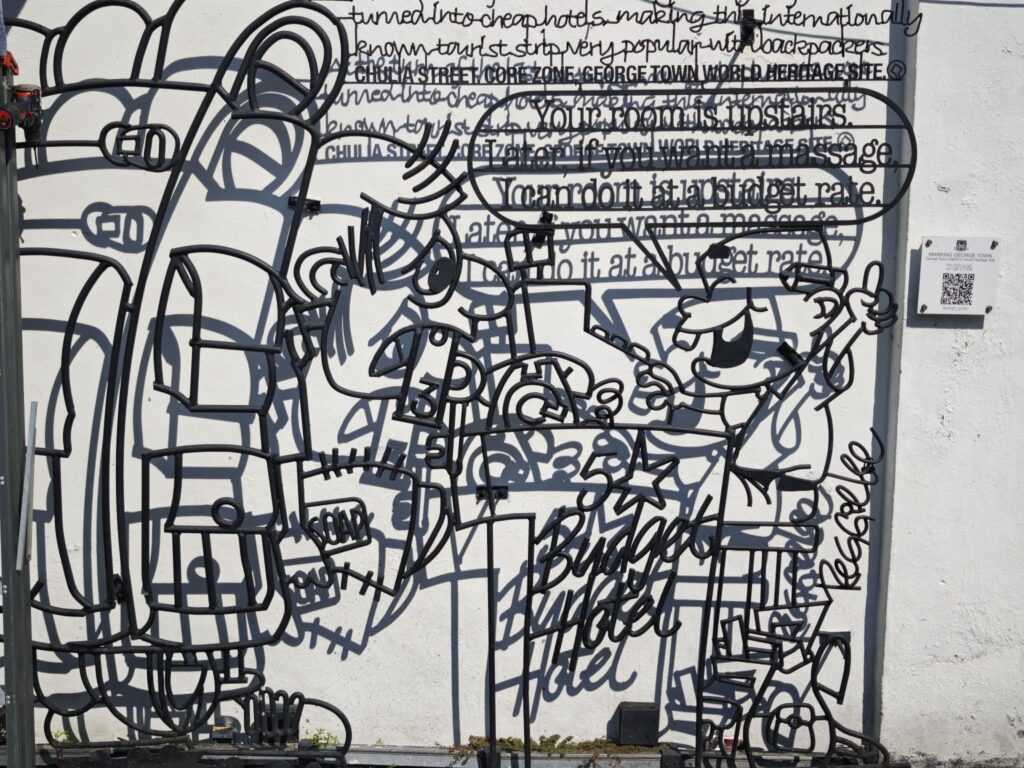 turned into cheap hotels, making this internationally
known tourist strip very popular with backpackers
CHULIA STREET, CORE ZONE, GEORGE TOWN WORLD HERITAGE SITE.
Your room is upstairs.
Later, if you want a massage,
I can do it at a budget rate.
MARKING GEORGE TOWN
13
SOAP
5
Budget
Hotel
Reggie Lee